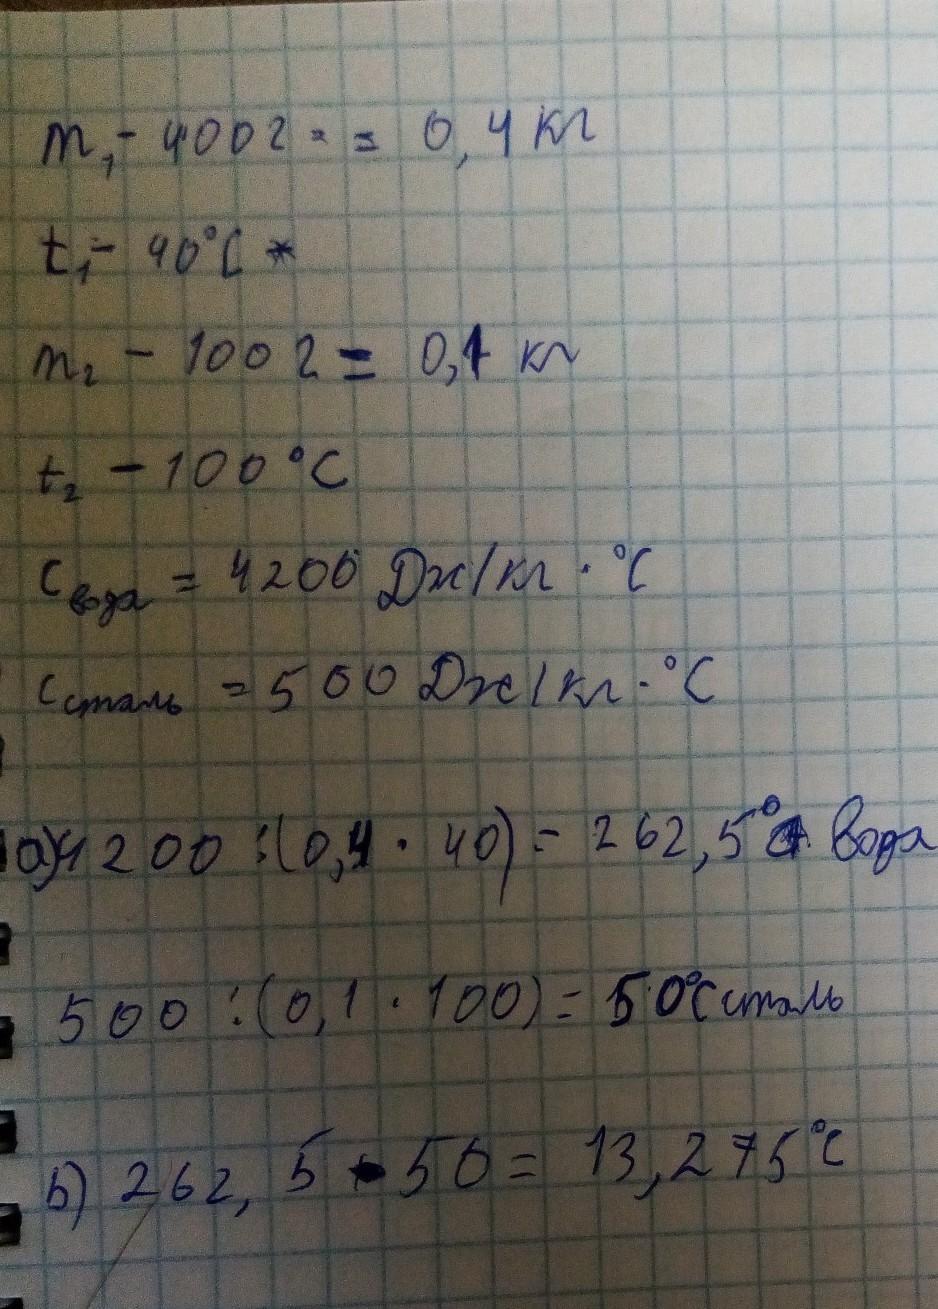 m₁ - 400 г = 0,4 кг
t₁ - 40°C
m₂ - 100 г = 0,1 кг
t₂ - 100°C
Cвода = 4200 Дж/кг · °C
Cсталь = 500 Дж/кг · °C
а) 4200 : (0,4 · 40) = 262,5°C вода
500 : (0,1 · 100) = 50°C сталь
б) 262,5 · 50 = 13,275°C